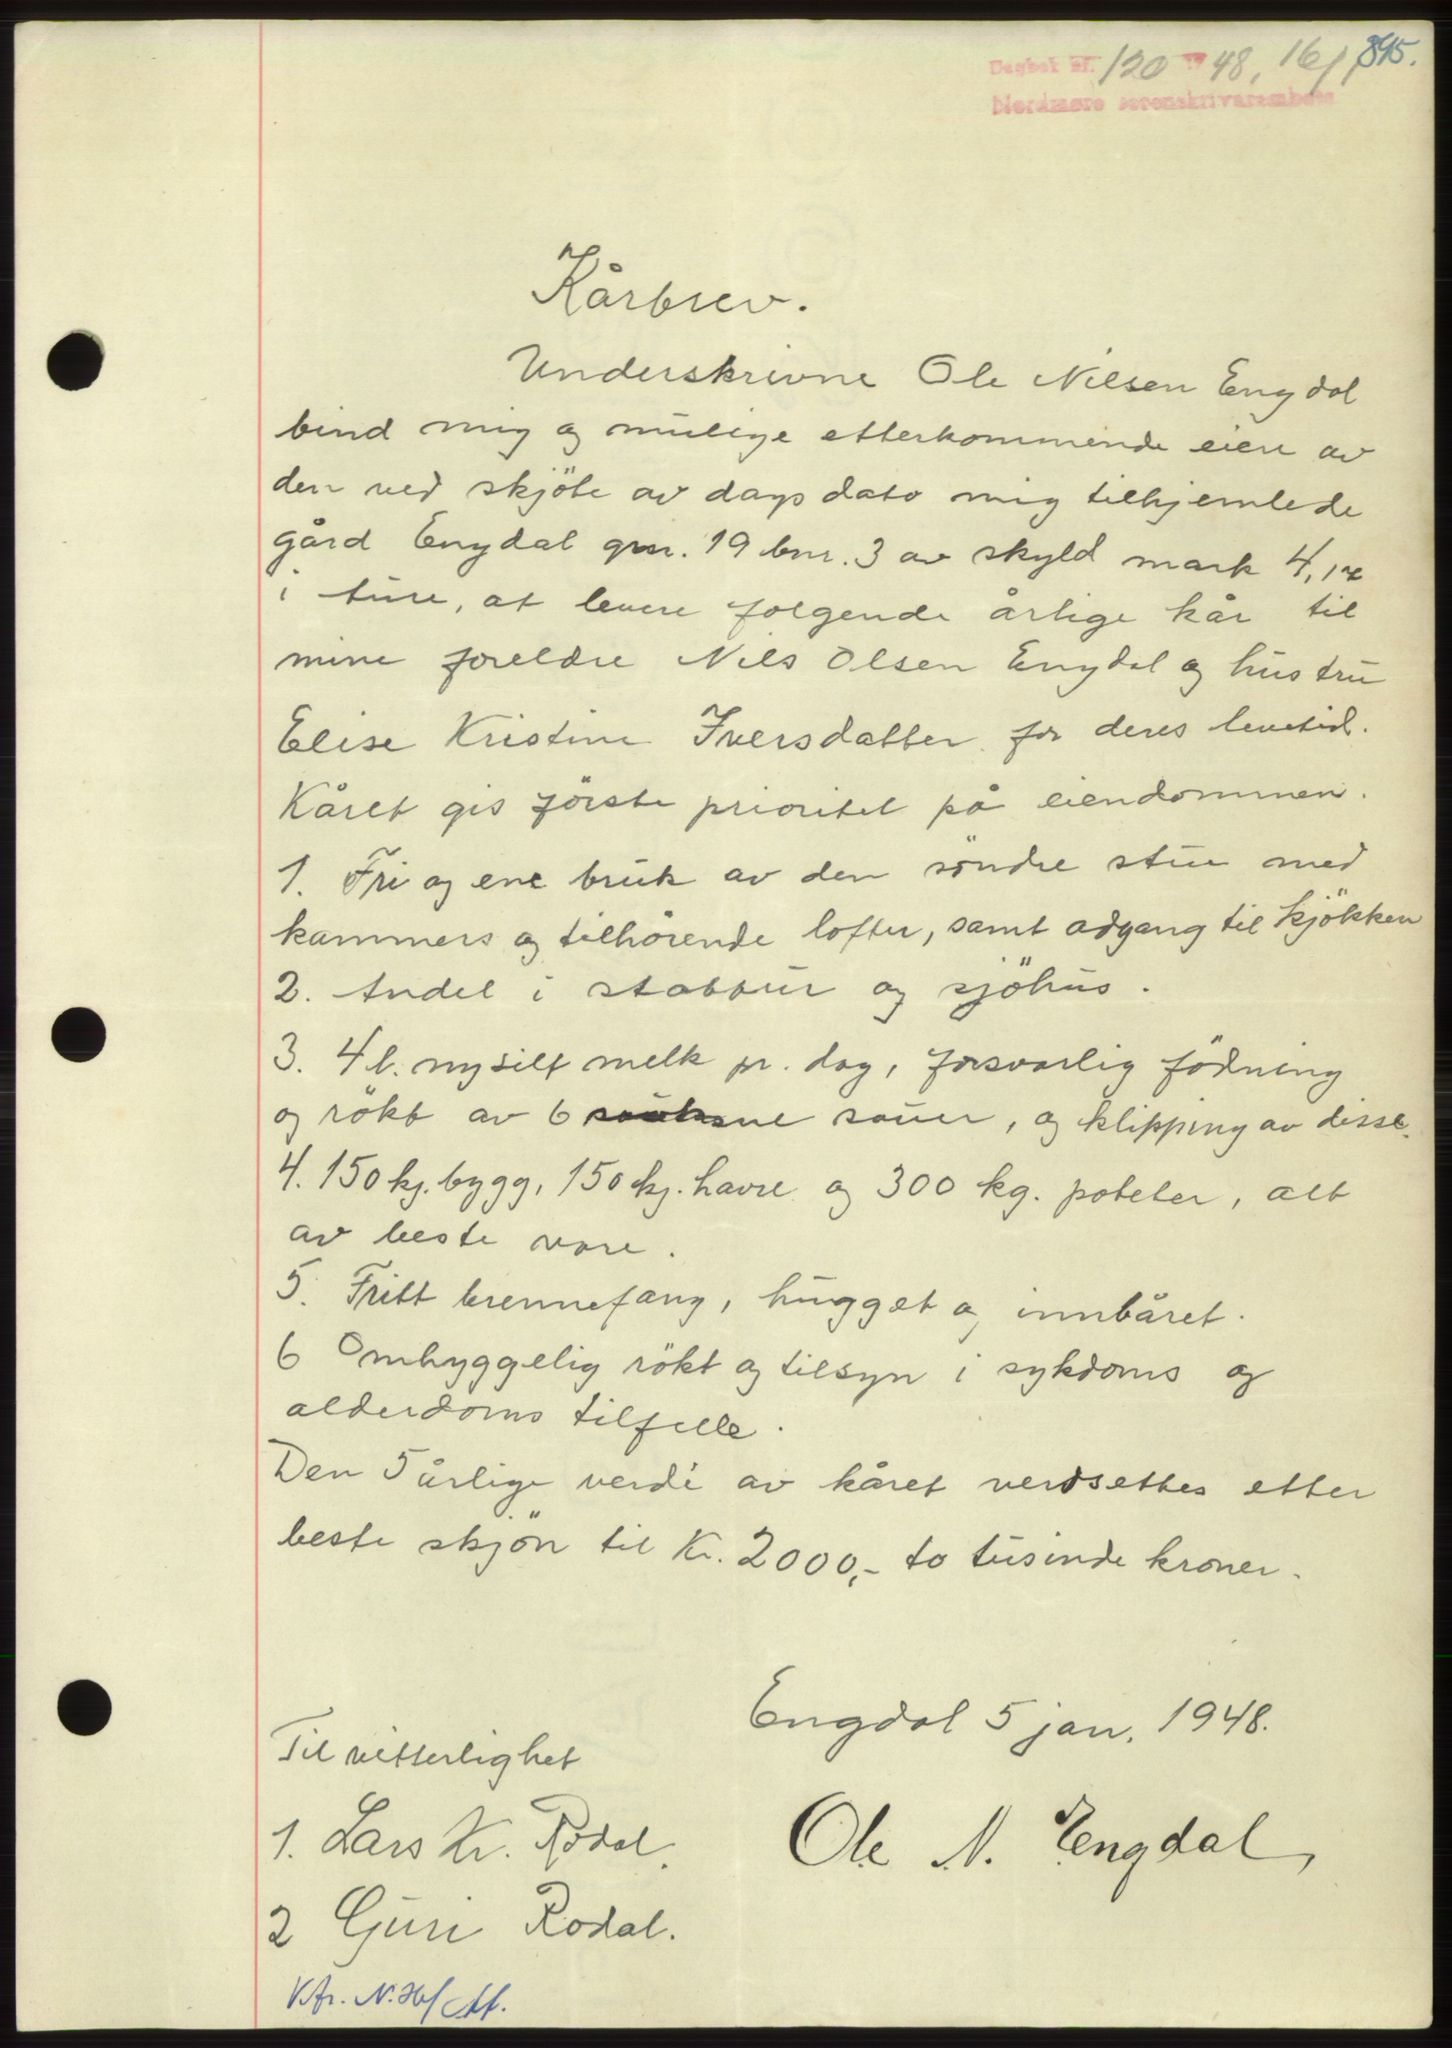 895.
Dagbok nr. 120 19 48, 16/1
Nordmøre sorenskrivarembete
Kårbrev.
Underskrivne Ole Nilsen Engdal
bind mig og mulige etterkommende eiere av
den ved skjöte av dags dato mig tilhjemlede
gård Engdal gnr. 19 bnr. 3 av skyld mark 4,
i Ture, at levere folgende årlige kår til
mine foreldre Nils Olsen Engdal og hustru
Elise Kristine Iversdatter for deres levetid.
Kåret gis förste prioritet på eiendommen.
1. Fri og ene bruk av den söndre stue med
kammers og tilhörende lofter, samt adgang til kjökken
2. Andel i stabbur og sjöhus.
3. 4 l. nysilt melk pr. dag, forsvarlig födning
og rökt av 6 sauer, og klipping av disse.
4. 150 kg. bygg, 150 kg. havre og 300 kg. poteter, alt
av beste vare.
5. Fritt brennefang, hugget og innbåret.
6 Omhyggelig rökt og tilsyn i sykdoms og
alderdoms tilfelle.
Den 5 årlige verdi av kåret verdsettes etter
beste skjön til Kr. 2000,- to tusinde kroner.
Engdal 5 jan. 1948.
Til vitterlighet
1. Lars Kr. Rodal.
Ole N. Engdal
2 Guri Rodal.